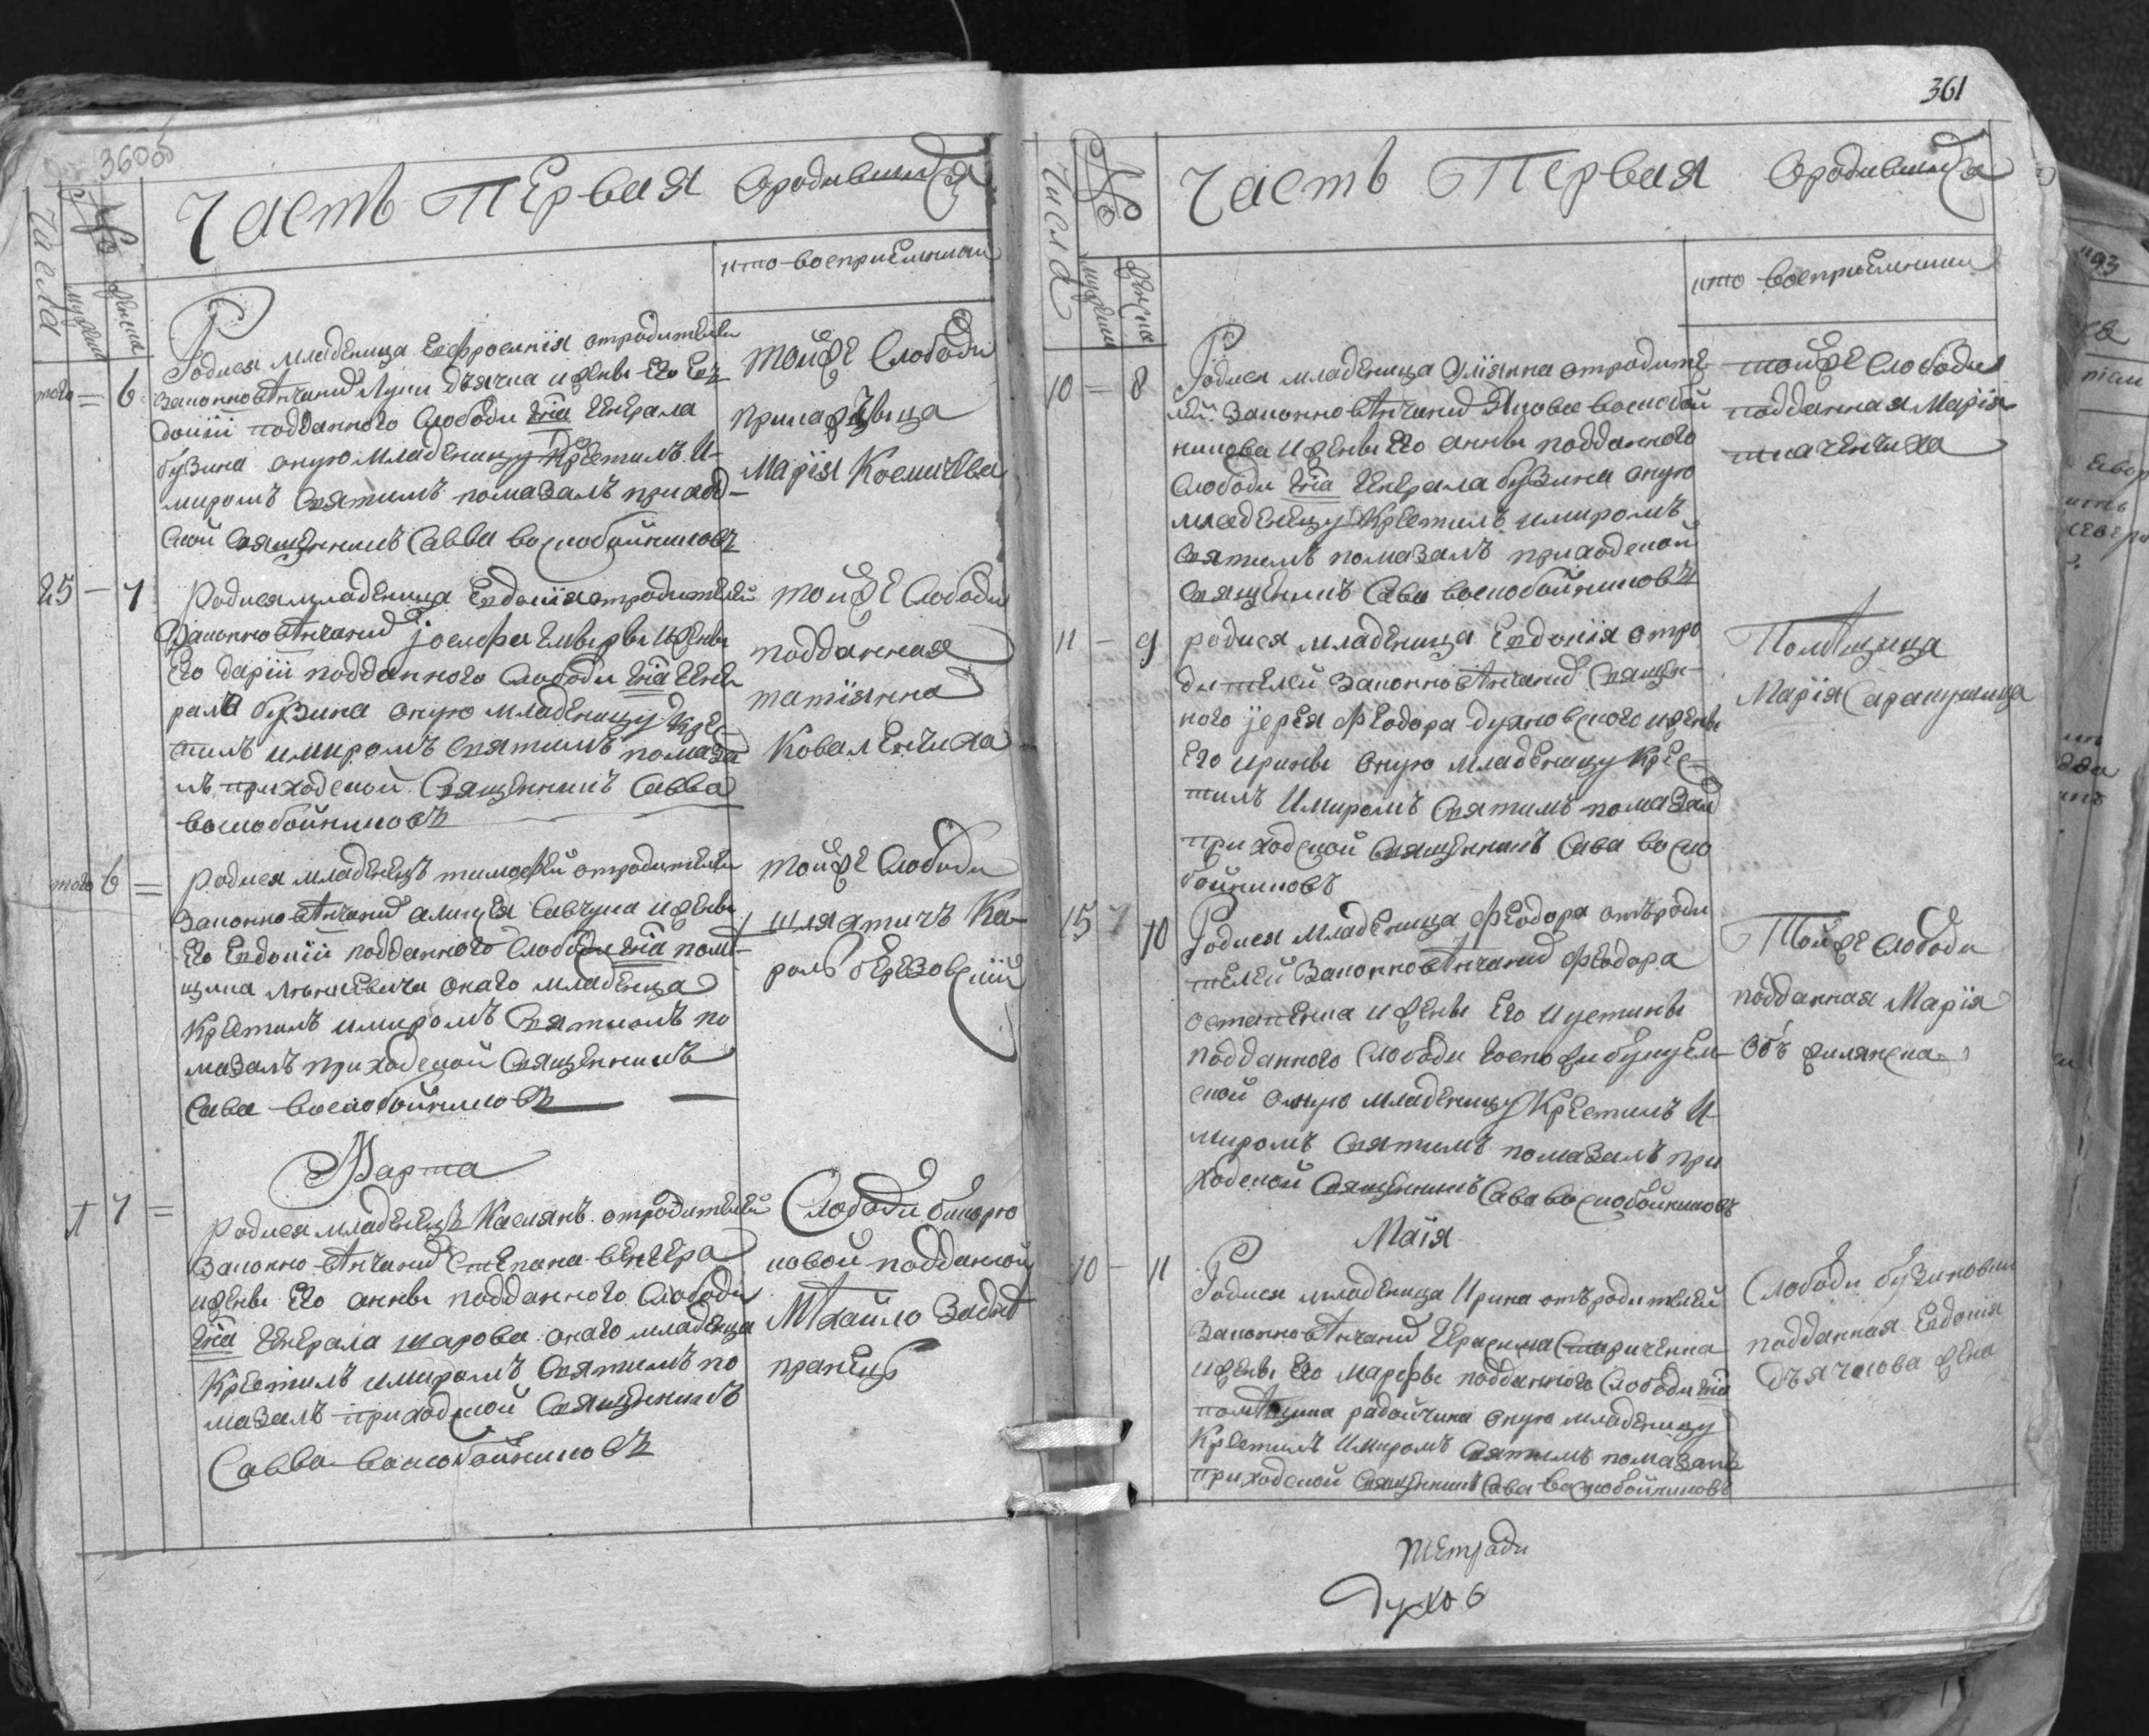 360об
Часть Первая Ородившихся
Числа
№
мужеска
женска
кто восприемники
того = 6
Родися младеница Ефросинія отродителей
законновѣнчаних Луки Дьячка ижены Его Ев
докіи подданного Слободи Ена Генерала
бузина оную младеницу Крестилъ И
миромъ Святимъ помазалъ приход
ской Священникъ Савва воскобойниковъ
тойже Слободи
Марія Косичева
25 – 7
Родисямладеница Евдокіяотродителей
Законновѣнчаних Іосифа ижены
Его даріи подданного Слободи Ена Гене
рала бузина оную младеницу Крес
тилъ имиромъ Святимъ помаза
лъ приходской Священникъ Савва
воскобойниковъ
тойже Слободи
подданная
татіянна
Коваленчиха
того 6 =
Родися младенецъ тимофей отродителей
законновѣнчаних алиѯея Савчука ижены
Его Евдокіи подданного Слободи Ена помѣ
щика онаго младенца
Крестилъ имиромъ Святимъ по
мазалъ приходской Священникъ
Сава воскобойниковъ
тойже Слободи
шляхтичъ Ка
роль березовскій
Марта
1 7 =
Родися младенецъ Касиянъ отродителей
Законно вѣнчаних Степана венгера
ижены Его анны подданного Слободи
Ена Генерала шарова онаго младенца
Крестилъ имиромъ Святимъ по
мазалъ приходской Священникъ
Савва воскобойниковъ
Слободи
новой подданной
Михайло Задне
пранецъ
361
Часть Первая Ородившихся
Числа
№
мужеска
женска
кто восприемники
10 = 8
Родися младеница Улиянна отродите
лей Законновѣнчаних Якова воскобой
никова ижены Его анны подданного
Слободи Ена Генерала бузина оную
младеницу Крестилъ имиромъ
Святимъ помазалъ приходской
Священникъ Сава воскобойниковъ
тойже Слободи
подданная Марія
ткаченчиха
11 – 9
родися младеница Евдокія отро
дителей законновѣнчаних Священ
ного іерея Феодора духновского ижены
Его ирины оную младеницу Крес
тилъ Имиромъ Святимъ помазалъ
приходской Священникъ Сава воско
бойниковъ
Помѣщица
Марія
15 10
Родися Младеница Феодора отъроди
телей Законновѣнчаних Феодора
остапенка ижены Его Иустины
подданного Слободи Госпожи
ской оную младеницу Крестилъ И
миромъ Святимъ помазалъ при
ходской Священникъ Сава воскобойниковъ
Тойже Слободи
подданная Марія
Маія
10 – 11
Родися младеница Ирина отъродителей
Законновѣнчаних Герасима
ижены Его Марфы подданного Слободи Ена
помѣщика радойчина оную младеницу
Крестилъ Имиромъ Святимъ помазалъ
приходской Священникъ Сава воскобойниковъ
Слободи бузиновки
подданная Евдокія
дъячкова жена
тетради
духов